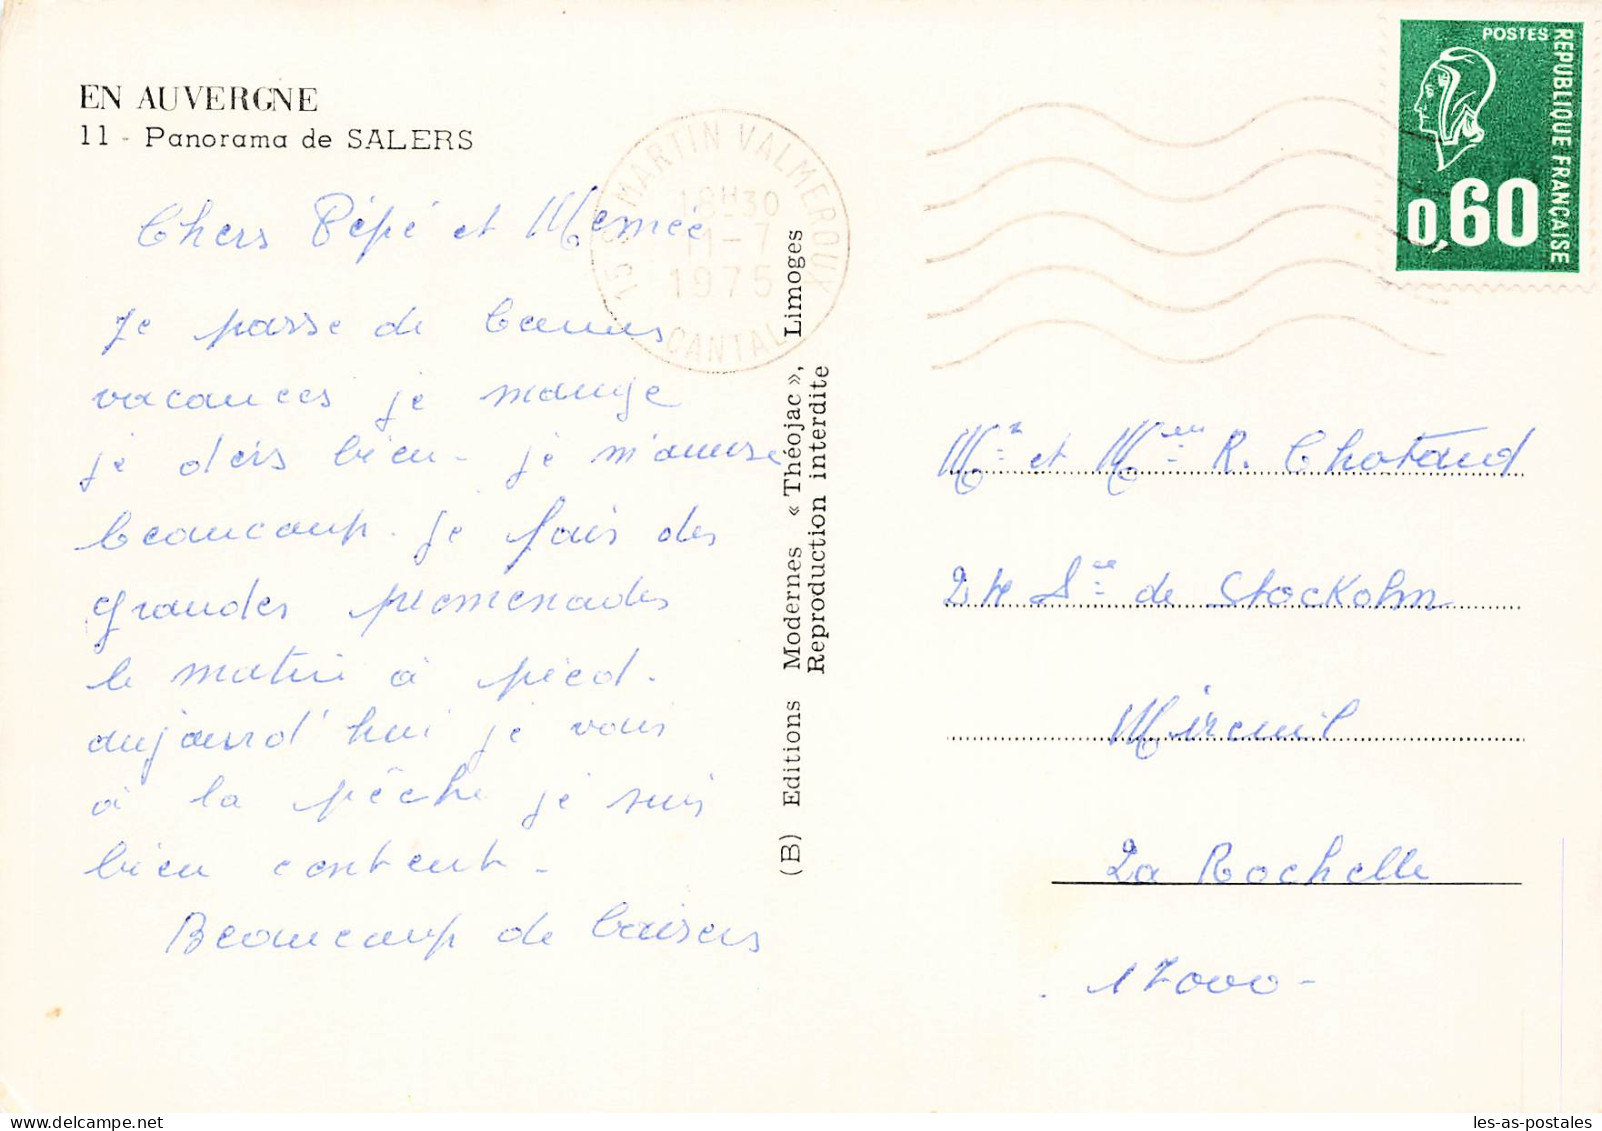 EN AUVERGNE
11 - Panorama de SALERS
Chers Pépé et Memée
Je passe de bonnes
vacances je mange
je dors bien - je m'amuse
beaucoup. je fais des
grandes promenades
le matin à pied.
aujourd'hui je vais
à la pêche je suis
bien content -
Beaucoup de baisers
15 ST MARTIN VALMEROUX
18H30
11-7
1975
CANTAL
(B) Editions Modernes « Théojac », Limoges
Reproduction interdite
POSTES
REPUBLIQUE FRANÇAISE
0,60
Mr et Mme R. Chotard
de Stockolm
Mireuil
La Rochelle
17000-
les-as-postales